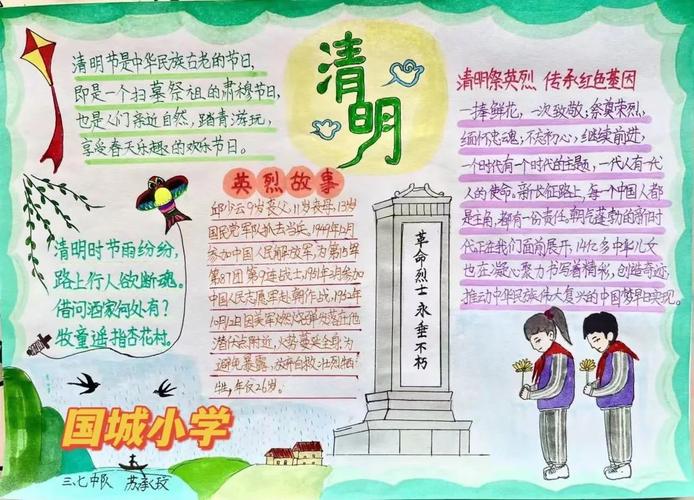 清明节是中华民族古老的节日,
即是一个扫墓祭祖的肃穆节日,
也是人们亲近自然,踏青游玩,
享受春天乐趣的欢乐节日。
清明
清明祭英烈 传承红色基因
一捧鲜花,一次致敬;祭奠英烈,
缅怀忠魂;不忘初心,继续前进,
一个时代有一个时代的主题,一代人有一代
人的使命。新长征路上,每一个中国人都
是主角,都有一份责任。朝气蓬勃的新时
代正在我们面前展开,14亿多中华儿女
也在凝心聚力书写着精彩,创造奇迹,
推动中华民族伟大复兴的中国梦早日实现。
英烈故事
邱少云9岁丧父,11岁丧母,13岁
国民党军队抓去当兵,1949年12月
参加中国人民解放军,为第15军
第87团第9连战士,1951年3月参加
中国人民志愿军赴朝作战,1952年
10月12日因美军燃烧弹落在他
潜伏点附近,火势蔓延全身,为
避免暴露,放弃自救,壮烈牺
牲,年仅26岁。
清明时节雨纷纷,
路上行人欲断魂。
借问酒家何处有?
牧童遥指杏花村。
革命烈士永垂不朽
国城小学
三、七中队 苏